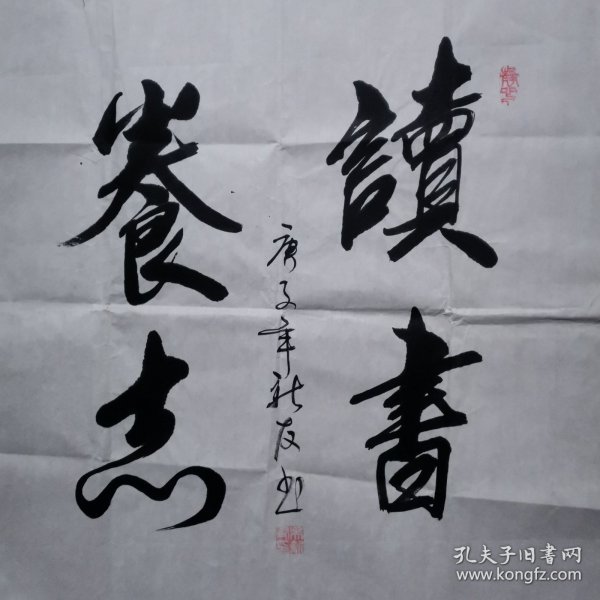 讀書
養志
庚子年秋友书
孔夫子旧书网
www.kongfz.com